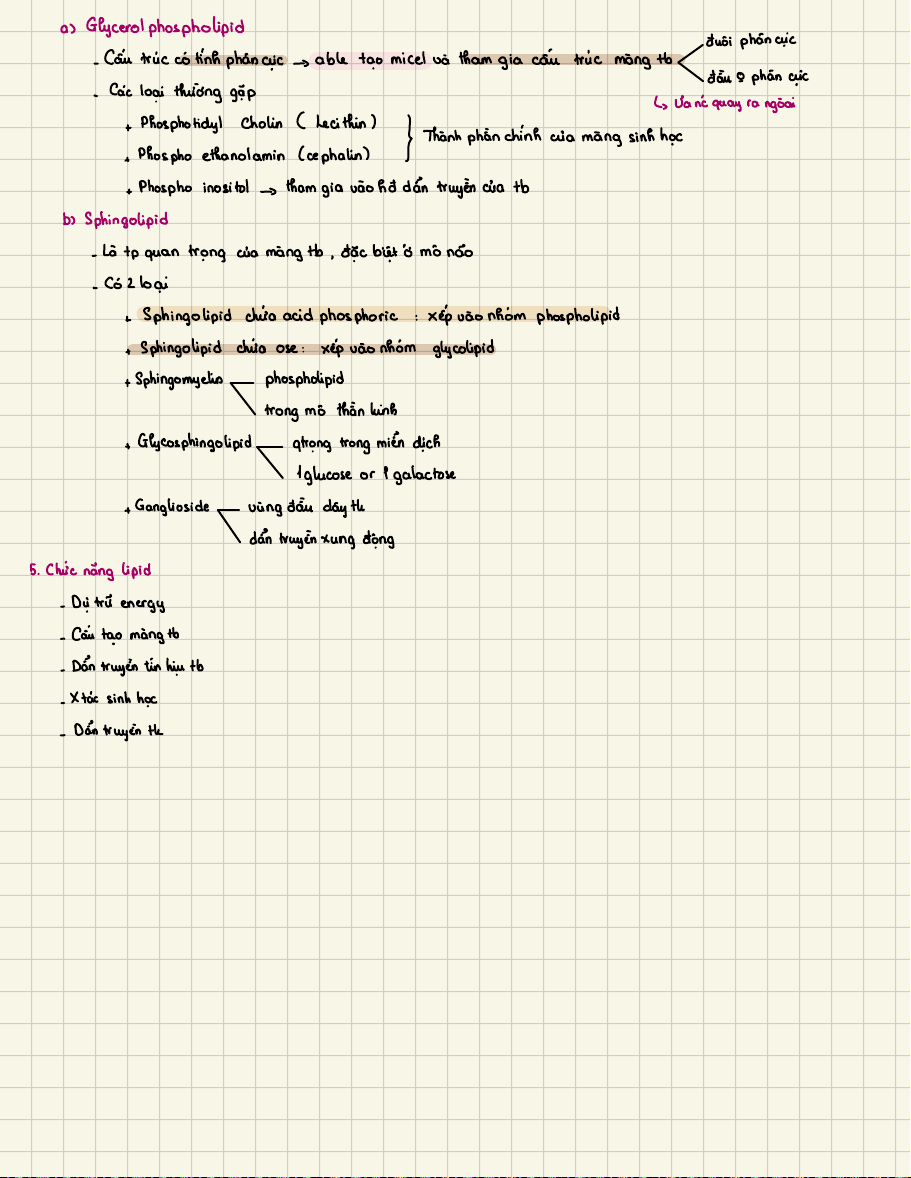 a) Glycerol phospholipid
- Cấu trúc có tính phân cực → able tạo micel và tham gia cấu trúc màng tb
đuôi phân cực
đầu phân cực
↳ Ưa nc quay ra ngoài
- Các loại thường gặp
+ Phosphotidyl Cholin (Lecithin)
+ Phospho ethanolamin (cephalin)
Thành phần chính của màng sinh học
+ Phospho inositol → tham gia vào hđ dẫn truyền của tb
b) Sphingolipid
- Là tp quan trọng của màng tb, đặc biệt ở mô não
- Có 2 loại
+ Sphingolipid chứa acid phosphoric : xếp vào nhóm phospholipid
+ Sphingolipid chứa ose: xếp vào nhóm glycolipid
+ Sphingomyelin
phospholipid
trong mô thần kinh
+ Glycosphingolipid
qtrọng trong miễn dịch
1 glucose or 1 galactose
+ Ganglioside
vùng đầu dây tk
dẫn truyền xung động
5. Chức năng lipid
- Dự trữ energy
- Cấu tạo màng tb
- Dẫn truyền tín hiệu tb
- Xtác sinh học
- Dẫn truyền tk